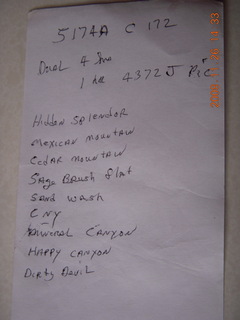 5174A C 172
Dual 4 hrs
1 hr 4372J PIC
Hidden Splendor
Mexican Mountain
Cedar Mountain
Sage Brush flat
Sand Wash
CNY
Mineral Canyon
Happy Canyon
Dirty Devil